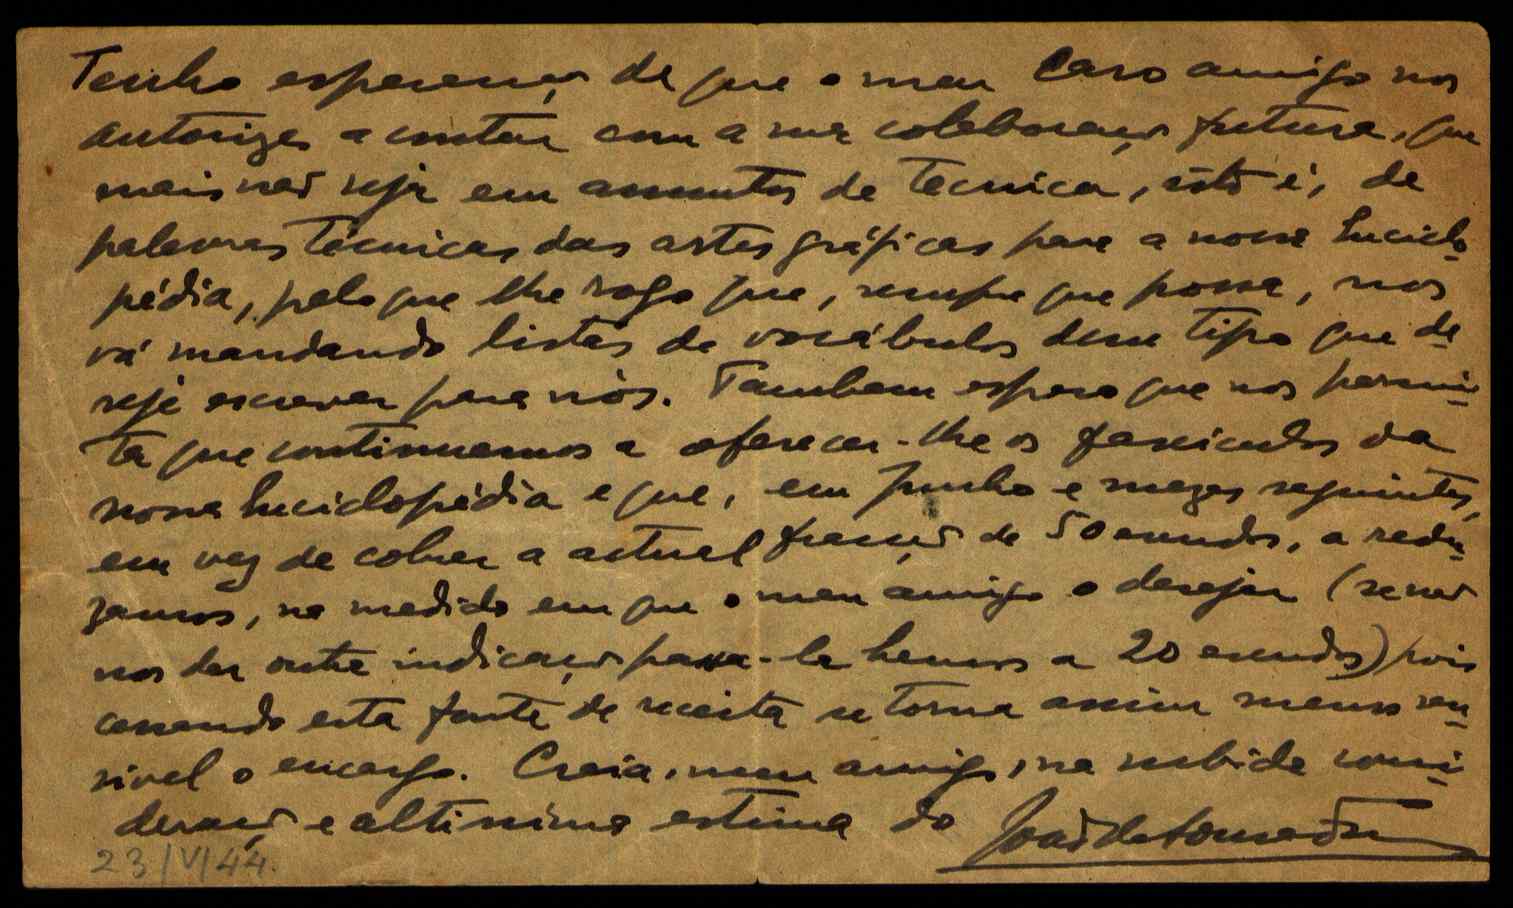 Tenho esperança de que o meu Caro amigo nos
autorize a contar com a sua colaboração futura, que
mais não seja em assuntos de Técnica, isto é, de
palavras Técnicas das artes gráficas para a nossa Enciclo-
pédia, pelo que lhe rogo que, sempre que possa, nos
vá mandando listas de vocábulos desse tipo que de-
seje escrever para nós. Tambem espero que nos permi-
ta que continuemos a oferecer-lhe os fasciculos da
nossa Enciclopédia e que, em Junho e mezes seguintes,
em vez de cobrar a actual fracção de 50 escudos, a redu-
zamos, na medida em que o meu amigo o desejar (se não
nos der outra indicação passa-la hemos a 20 escudos) pois
cessando esta fonte de receita se torna assim menos sen-
sivel o encargo. Creia, meu amigo, na subida consi-
deração e altissima estima do João de Sousa
23/V/44.